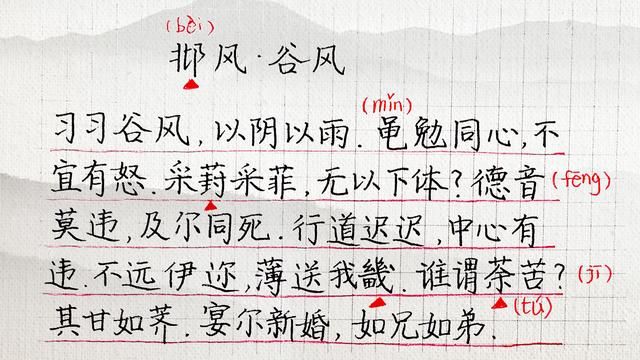 (bèi)
邶风·谷风
(mǐn)
习习谷风,以阴以雨.黾勉同心,不
宜有怒.采葑采菲,无以下体?德音(fēng)
莫违,及尔同死.行道迟迟,中心有
违.不远伊迩,薄送我畿.谁谓荼苦?(jī)
(tú)
其甘如荠.宴尔新婚,如兄如弟.